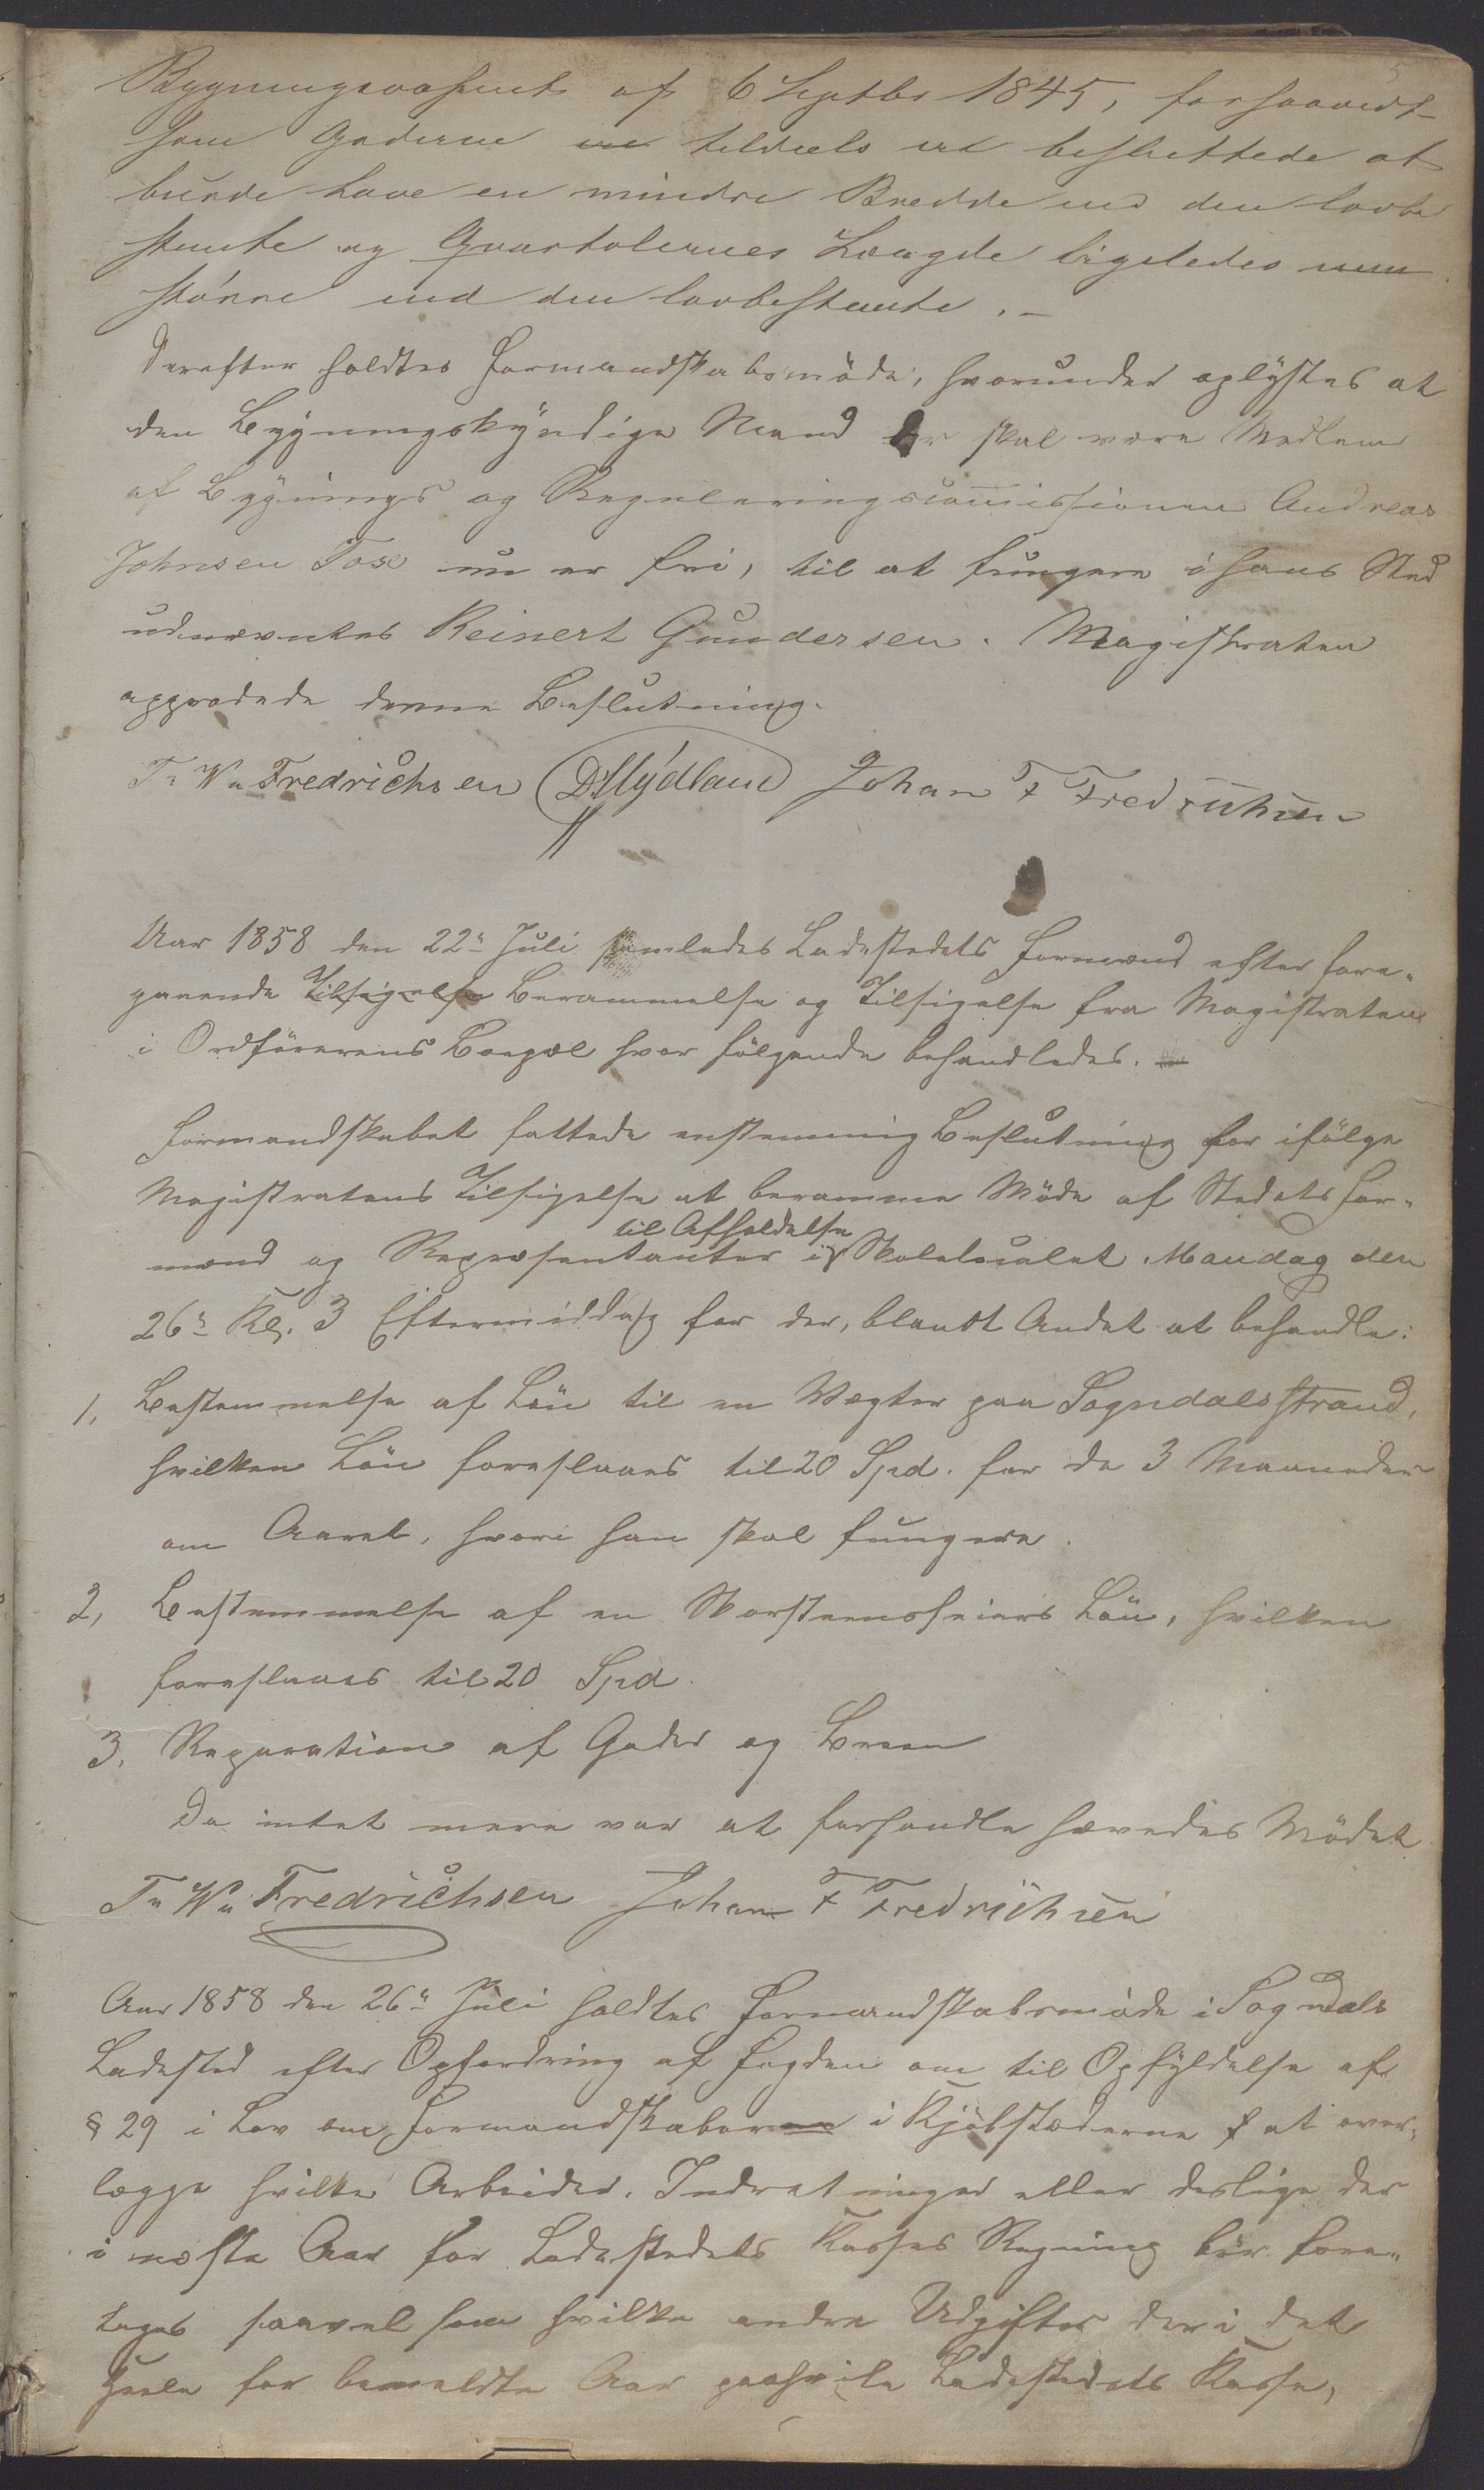 5
Bygningsvæsenet af 6 Septbr 1845, forsaavidt
som Gaderne ere tildeels ere besluttede at
burde have en mindre Bredde end den lovbe
stemte og Qvartalernes Længde ligeledes
större end den lovbestemte. –
Derefter holdtes Formandskabsmöde, hvorunder oplystes at
den Bygningskyndige Mand der skal være Medlem
af Bygnings og Reguleringscommissionen Andreas
Johnsen Tose nu er fri, til at fungere i hans Sted
udnævntes Reinert Gundersen. Magistraten
approbede denne Beslutning.
T. W. Fredrichsen D Mydland Johan F Fredrichsen
Aar 1858 den 22de Juli samledes Ladestedets Formænd efter fore-
gaaende Tilsigelse Berammelse og Tilsigelse fra Magistraten
i Ordförerens Boepæl hvor fölgende behandledes. –
Formandskabet fattede enstemmig Beslutning for ifölge
Magistratens Tilsigelse at beramme Möde af Stedets For-
til Afholdelse
mænd og Repræsentanter i Skolelocalet Mandag den
26de Kl. 3 Eftermiddag for der, blandt Andet at behandle:
1, Bestemmelse af Lön til en Vægter paa Sogndalsstrand,
hvilken Lön foreslaaes til 20 Spd. for de 3 Maaneder
om Aaret, hvori han skal fungere.
2, Bestemmelse af en Skorsteensfeiers Lön, hvilken
foreslaaes til 20 Spd.
3, Reparation af Gader og Broen
Da intet mere var at forhandle hævedes Mödet
T. W. Fredrichsen Johan F Fredrichsen
Aar 1858 den 26de Juli holdtes Formandskabsmöde i Sogndals
Ladested efter Opfordring af Fogden om til Opfyldelse af
§ 29 i Lov om Formandskaber i Kjöbstæderne at over-
lægge hvilke Arbeider, Indretninger eller deslige der
i næste Aar for Ladestedets Kasses Regning bör fore-
tages saavel som hvilke andre Udgifter der i det
Hele for bemeldte Aar paahvile Ladestedets Kasse,